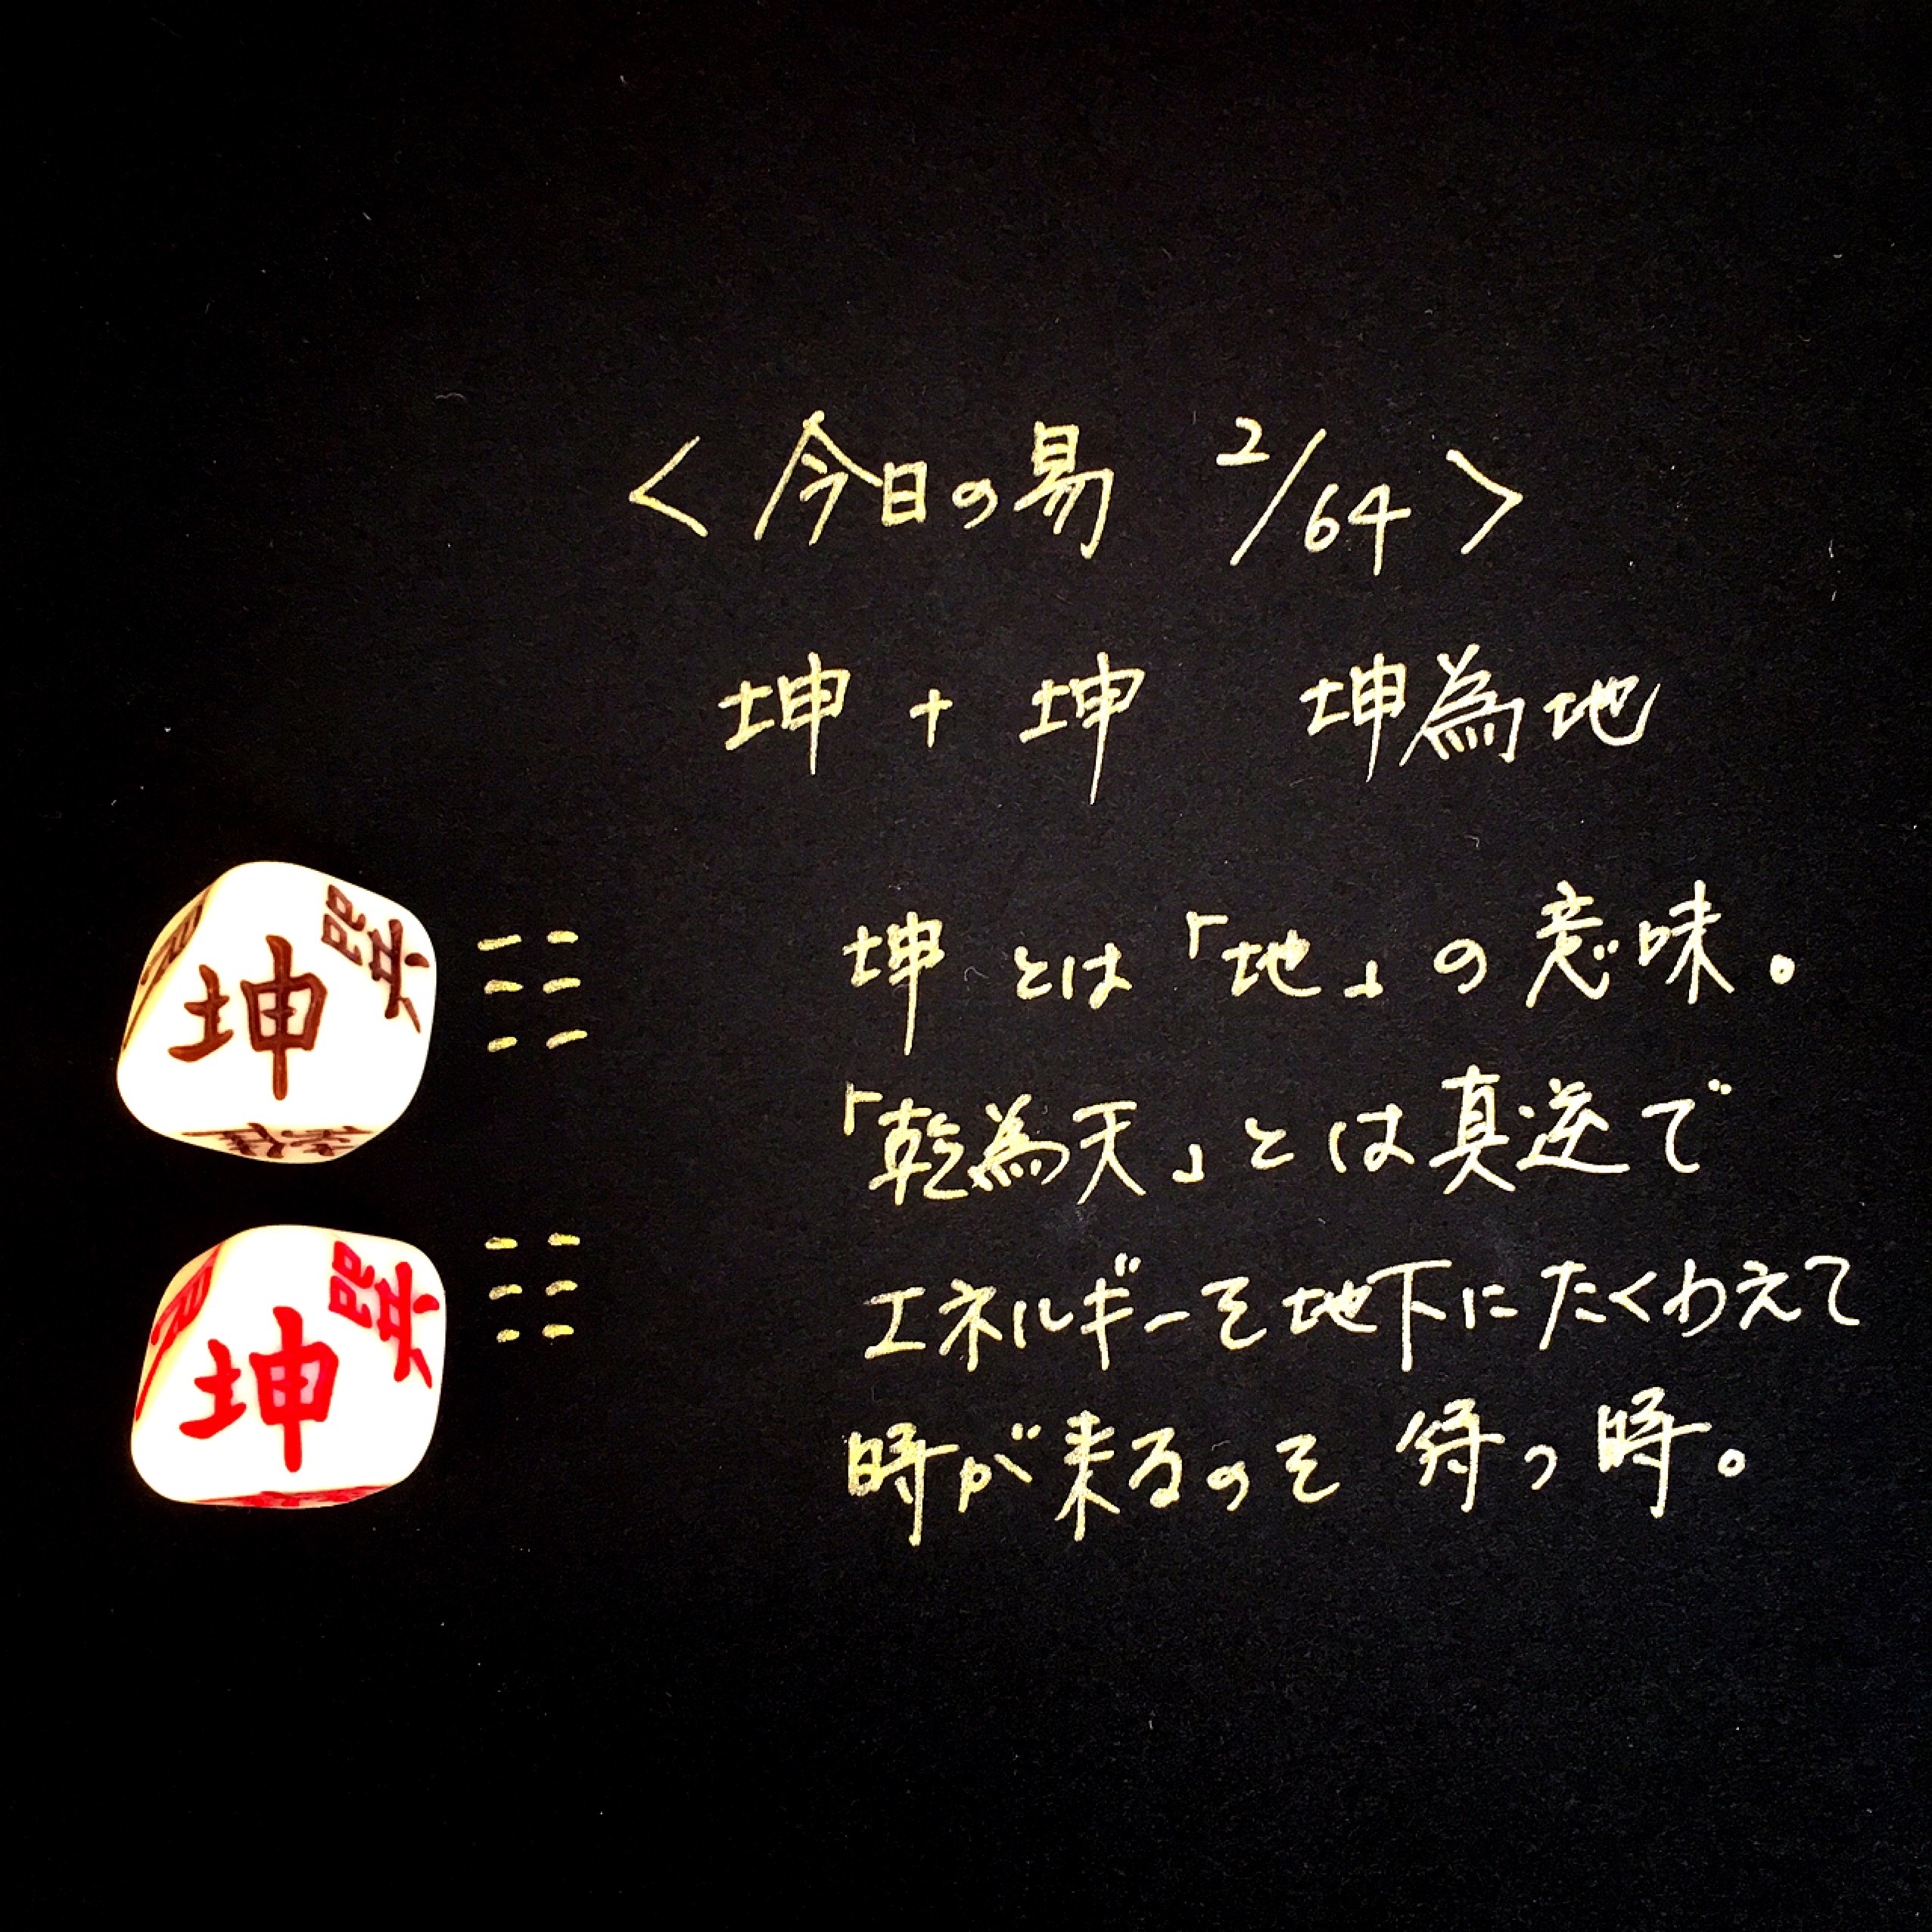 <今日の易 2/64>
坤 + 坤 坤為地
坤
坤とは「地」の意味。
「乾為天」とは真逆で
坤
エネルギーを地下にたくわえて
時が来るのを待つ時。